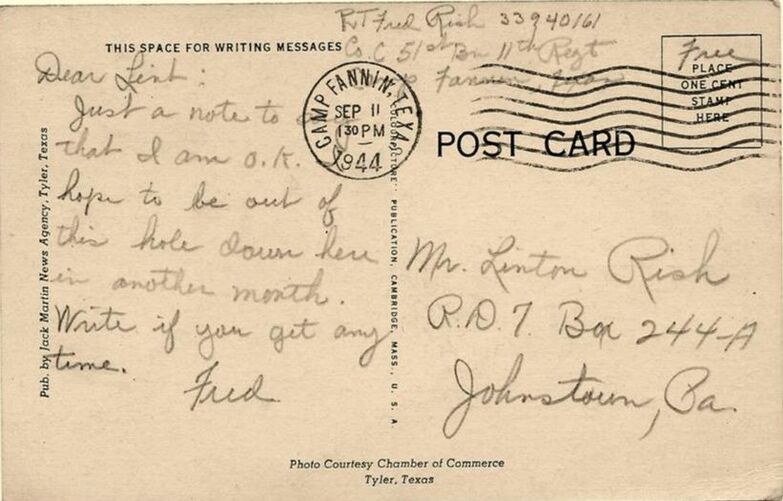 Pvt Fred Rish 33940161
Co. C 51st Bn 11th Regt
Fannin, Texas
THIS SPACE FOR WRITING MESSAGES
Dear Lint:
Just a note to say
that I am O.K. I
hope to be out of
this hole down here
in another month.
Write if you get any
time.
Fred
CAMP FANNIN, TEXAS
SEP 11
130 PM
1944
Free
PLACE
ONE CENT
STAMP
HERE
POST CARD
Mr. Linton Rish
R.D. 7. Box 244-A
Johnstown, Pa.
Pub. by Jack Martin News Agency, Tyler, Texas
PUBLICATION, CAMBRIDGE, MASS., U. S. A.
Photo Courtesy Chamber of Commerce
Tyler, Texas